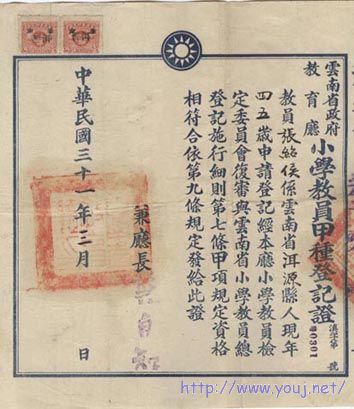 雲南省政府
教育廳
小學教員甲種登記證
00301
號
教員張紹侯係雲南省洱源縣人現年
四五歲申請登記經本廳小學教員檢
定委員會復審與雲南省小學教員總
登記施行細則第七條甲項規定資格
相符合依第九條規定發給此證
兼廳長
自知
中華民國三十一年三月 日
http://www.youj.net/